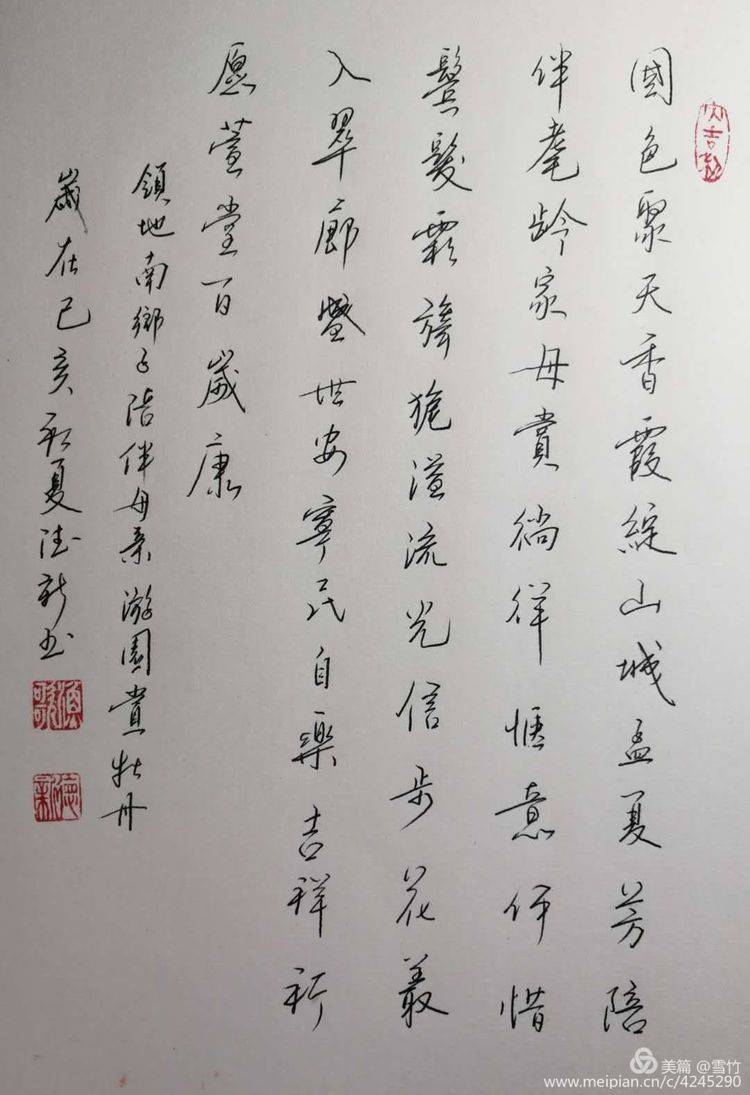 國色聚天香霞綻山城孟夏芳陪
伴耄龄家母賞徜徉惬意伢惜
鬓髮霜旖旎溢流光信步花叢
入翠廊盛世安寧民自樂吉祥祈
愿萱堂百歲康
領地南鄉子陪伴母亲游園賞牡丹
歲在己亥初夏德新书
德新
美篇 @雪竹
www.meipian.cn/c/4245290